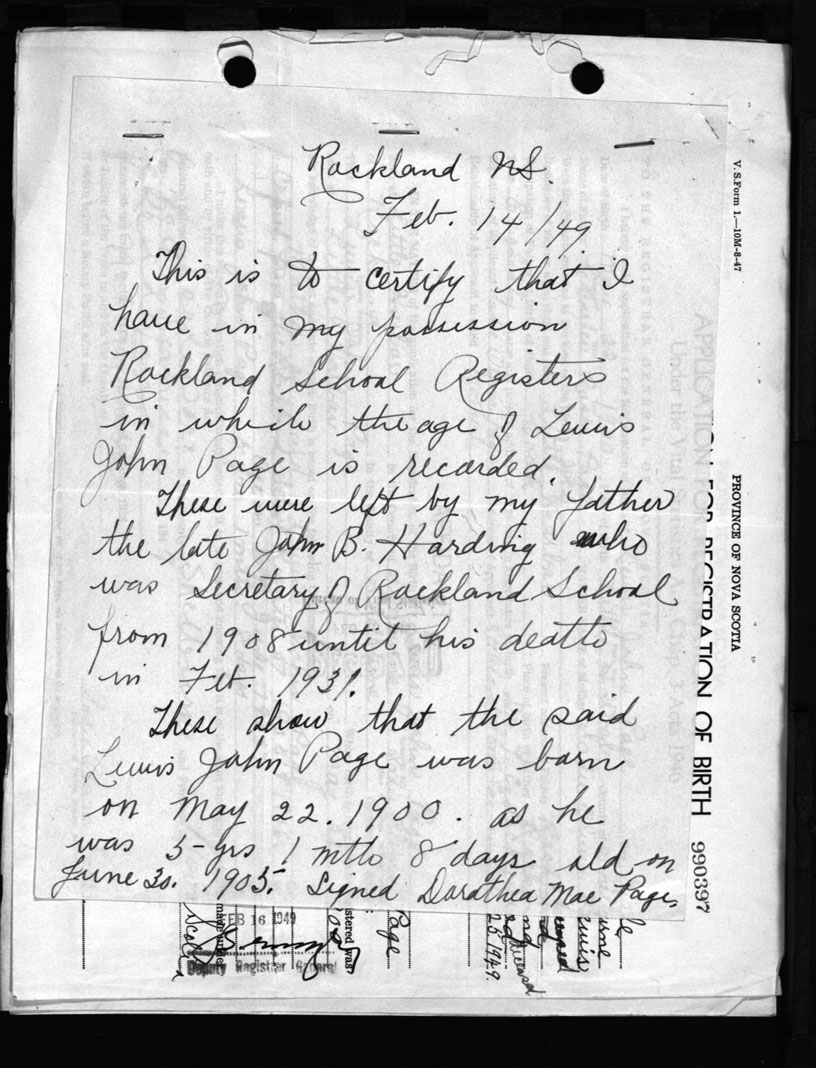 Rockland N.S.
Feb. 14/49.
This is to certify that I
have in my possession
Rockland School Registers
in which the age of Lewis
John Page is recorded.
These were left by my father
the late John B. Harding who
was Secretary of Rockland School
from 1908 until his death
in Feb. 1931.
These show that the said
Lewis John Page was born
on May 22. 1900. as he
was 5 yrs 1 mth 8 days old on
June 30. 1905. Signed Dorathea Mae Page.
V. S. Form 1.—10M-8-47
PROVINCE OF NOVA SCOTIA
REGISTRATION OF BIRTH
990397
FEB 16 1949
Deputy Registrar General
Page
25 1949.